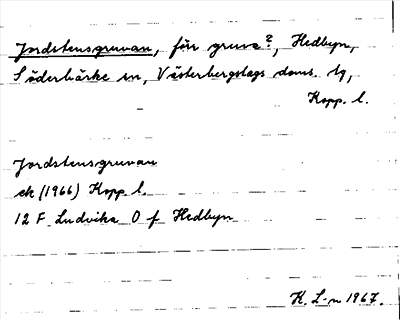 Jordstensgruvan, för gruva?, Hedbyn,
Söderbärke sn, Västerbergslags doms. tg,
Kopp. l.
Jordstensgruvan
ek (1966) Kopp l.
12 F Ludvika O f Hedbyn
K. L-n 1967.